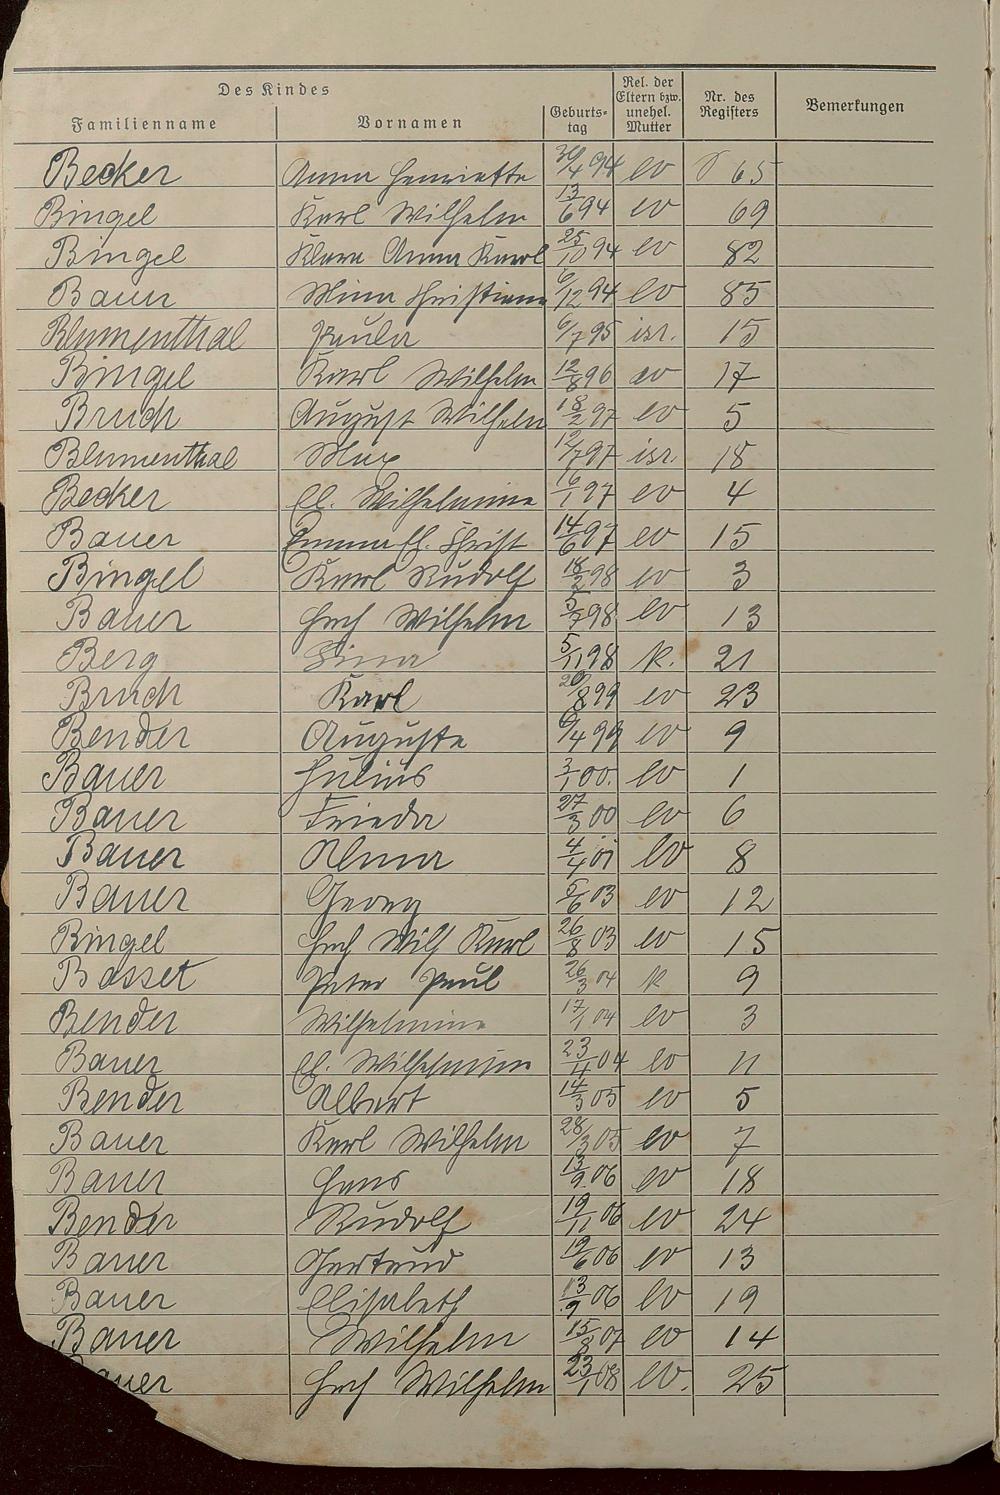 Des Kindes
Familienname Vornamen Geburtstag Rel. der Eltern bzw. unehel. Mutter Nr. des Registers Bemerkungen
Becker Anna Henriette 30/4 94 ev 65
Bingel Karl Wilhelm 13/6 94 ev 69
Bingel Klara Anna Karol 25/10 94 ev 82
Bauer Mina Christiane 6/12 94 ev 85
Blumenthal Paula 6/7 95 isr. 15
Bingel Karl Wilhelm 12/8 96 ev 17
Bruch August Wilhelm 18/2 97 ev 5
Blumenthal Max 12/7 97 isr. 18
Becker El. Wilhelmine 16/1 97 ev 4
Bauer Emma El. Christ 14/6 97 ev 15
Bingel Karl Rudolf 18/2 98 ev 3
Bauer Hch Wilhelm 5/7 98 ev 13
Berg Lina 5/11 98 k. 21
Bruch Karl 20/8 99 ev 23
Bender Auguste 6/4 99 ev 9
Bauer Julius 3/1 00. ev 1
Bauer Frieda 27/3 00 ev 6
Bauer Alma 4/4 01 ev 8
Bauer Georg 5/6 03 ev 12
Bingel Hch Wilh Karl 26/8 03 ev 15
Basset Peter Paul 26/3 04 k 9
Bender Wilhelmine 17/1 04 ev 3
Bauer El. Wilhelmine 23/4 04 ev 11
Bender Albert 14/3 05 ev 5
Bauer Karl Wilhelm 28/3 05 ev 7
Bauer Hans 13/9 06 ev 18
Bender Rudolf 19/11 06 ev 24
Bauer Gertrud 19/6 06 ev 13
Bauer Elisabeth 13/9 06 ev 19
Bauer Wilhelm 15/8 07 ev 14
Bauer Hch Wilhelm 23/1 08 ev. 25